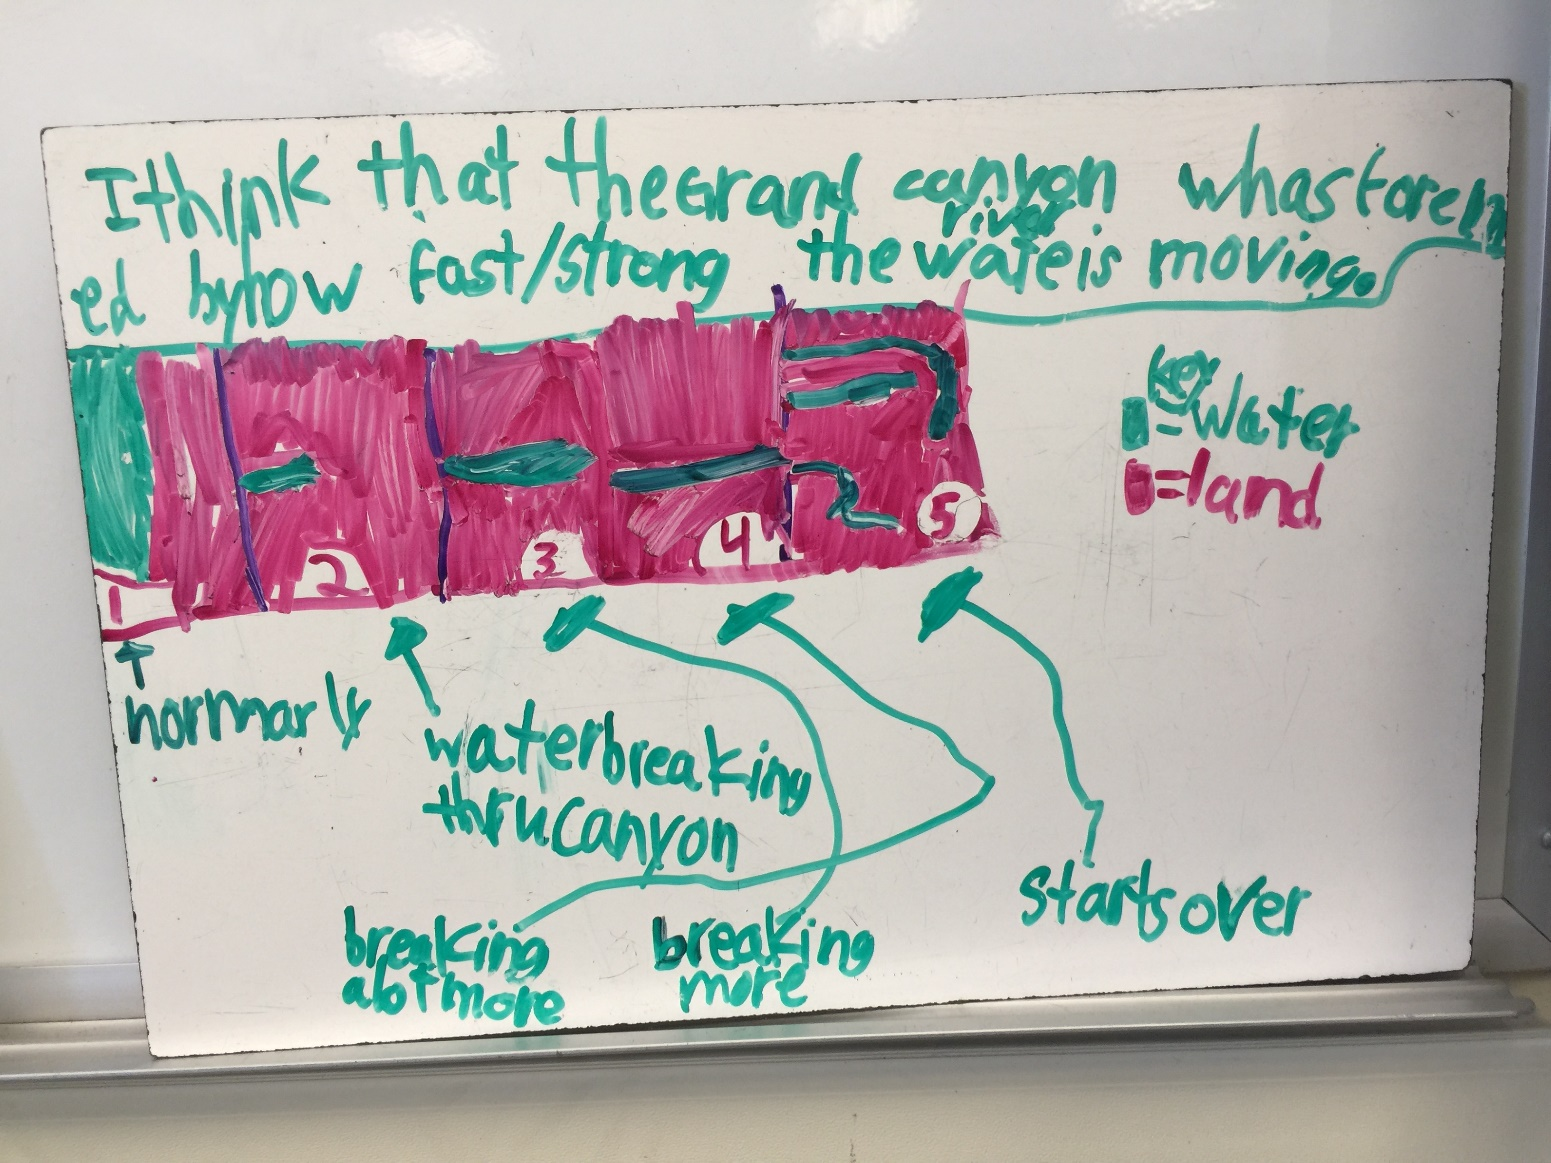 I think that the Grand canyon whas form
ed by how fast/strong the wate is moving.
river
key
=water
=land
1
2
3
4
5
normarly
water breaking
thru canyon
breaking
alot more
breaking
more
starts over